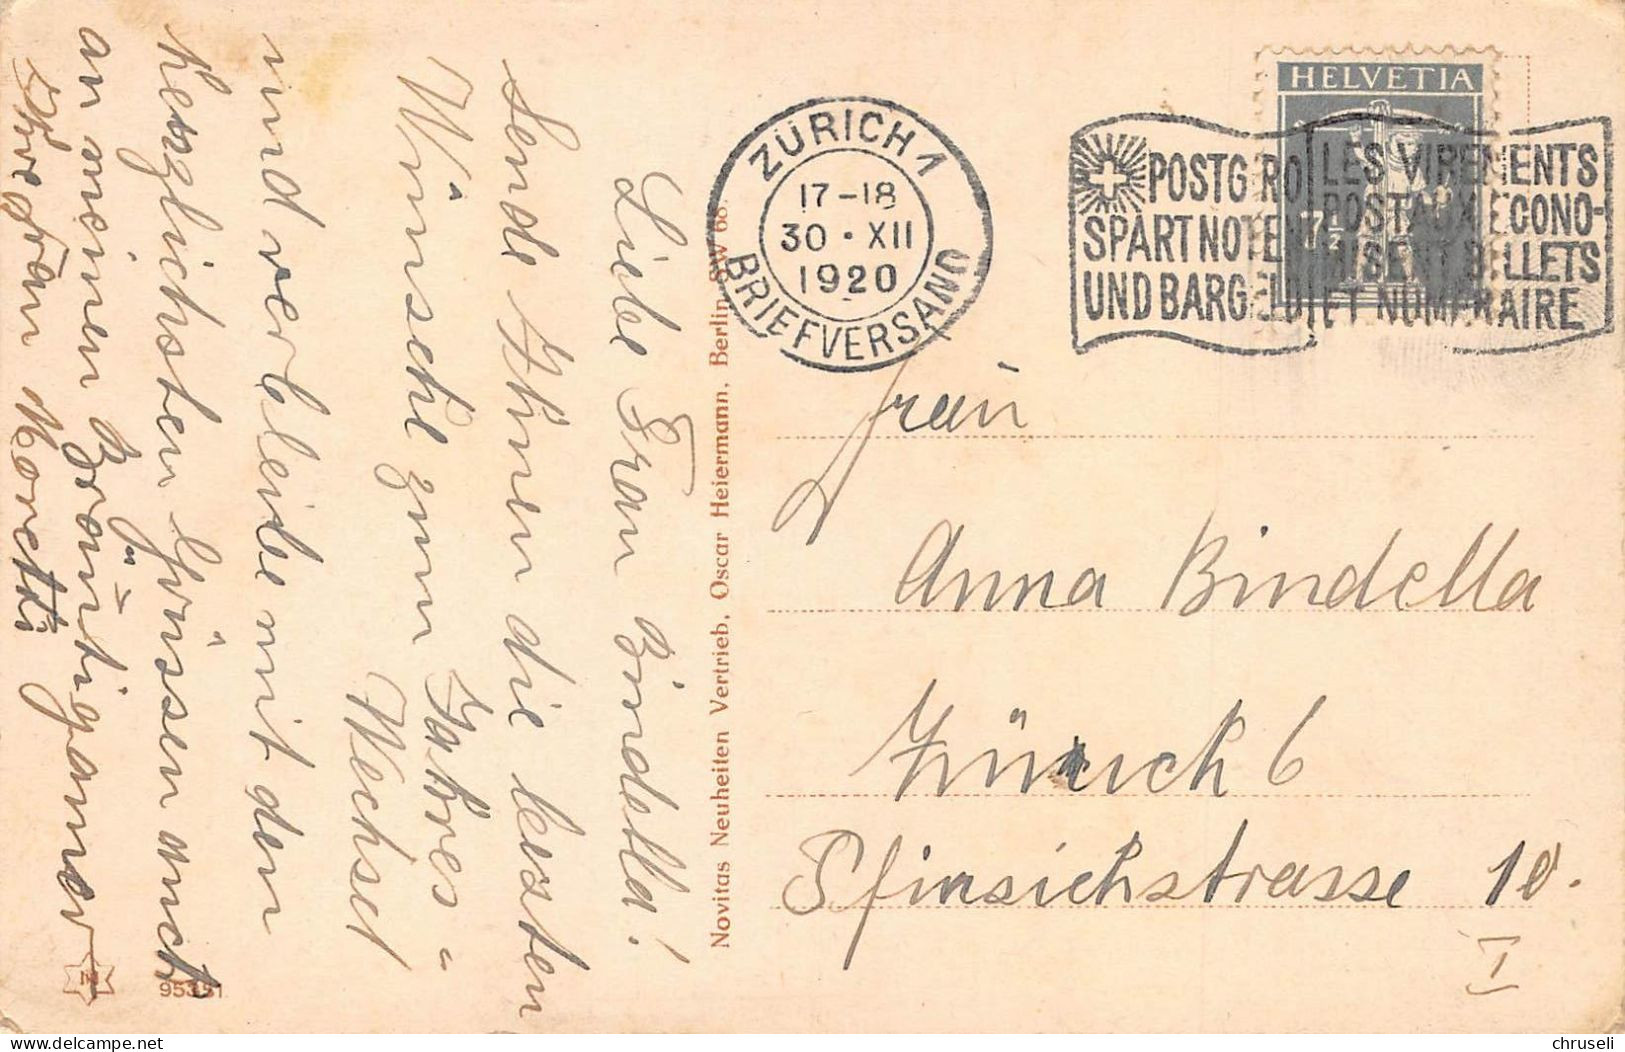 Liebe Frau Bindella!
Sende Ihnen die besten
Wünsche zum Jahres=
Wechsel
und verbleibe mit den
herzlichsten Grüssen auch
an meinen Bräutigamer
Ihre Frau Moretti
Novitas Neuheiten Vertrieb, Oscar Heiermann, Berlin SW 68.
95351
ZÜRICH 1
17-18
30·XII
1920
BRIEFVERSAND
HELVETIA
7½
POSTGIRO
SPART NOTEN
UND BARGELD
LES VIREMENTS
POSTAUX ECONO-
MISENT BILLETS
ET NUMERAIRE
Frau
Anna Bindella
Zürich 6
strasse 10.
I
delcampe.net
chruseli